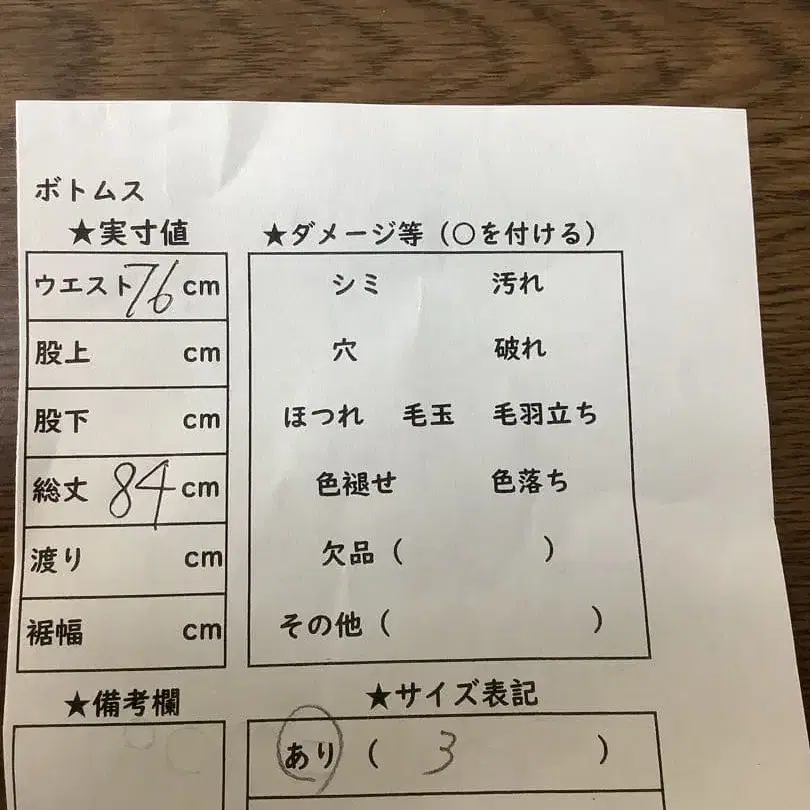 ボトムス
★実寸値
ウエスト 76 cm
股上 cm
股下 cm
総丈 84 cm
渡り cm
裾幅 cm
★ダメージ等（○を付ける）
シミ 汚れ
穴 破れ
ほつれ 毛玉 毛羽立ち
色褪せ 色落ち
欠品（ ）
その他（ ）
★備考欄
★サイズ表記
あり（ 3 ）